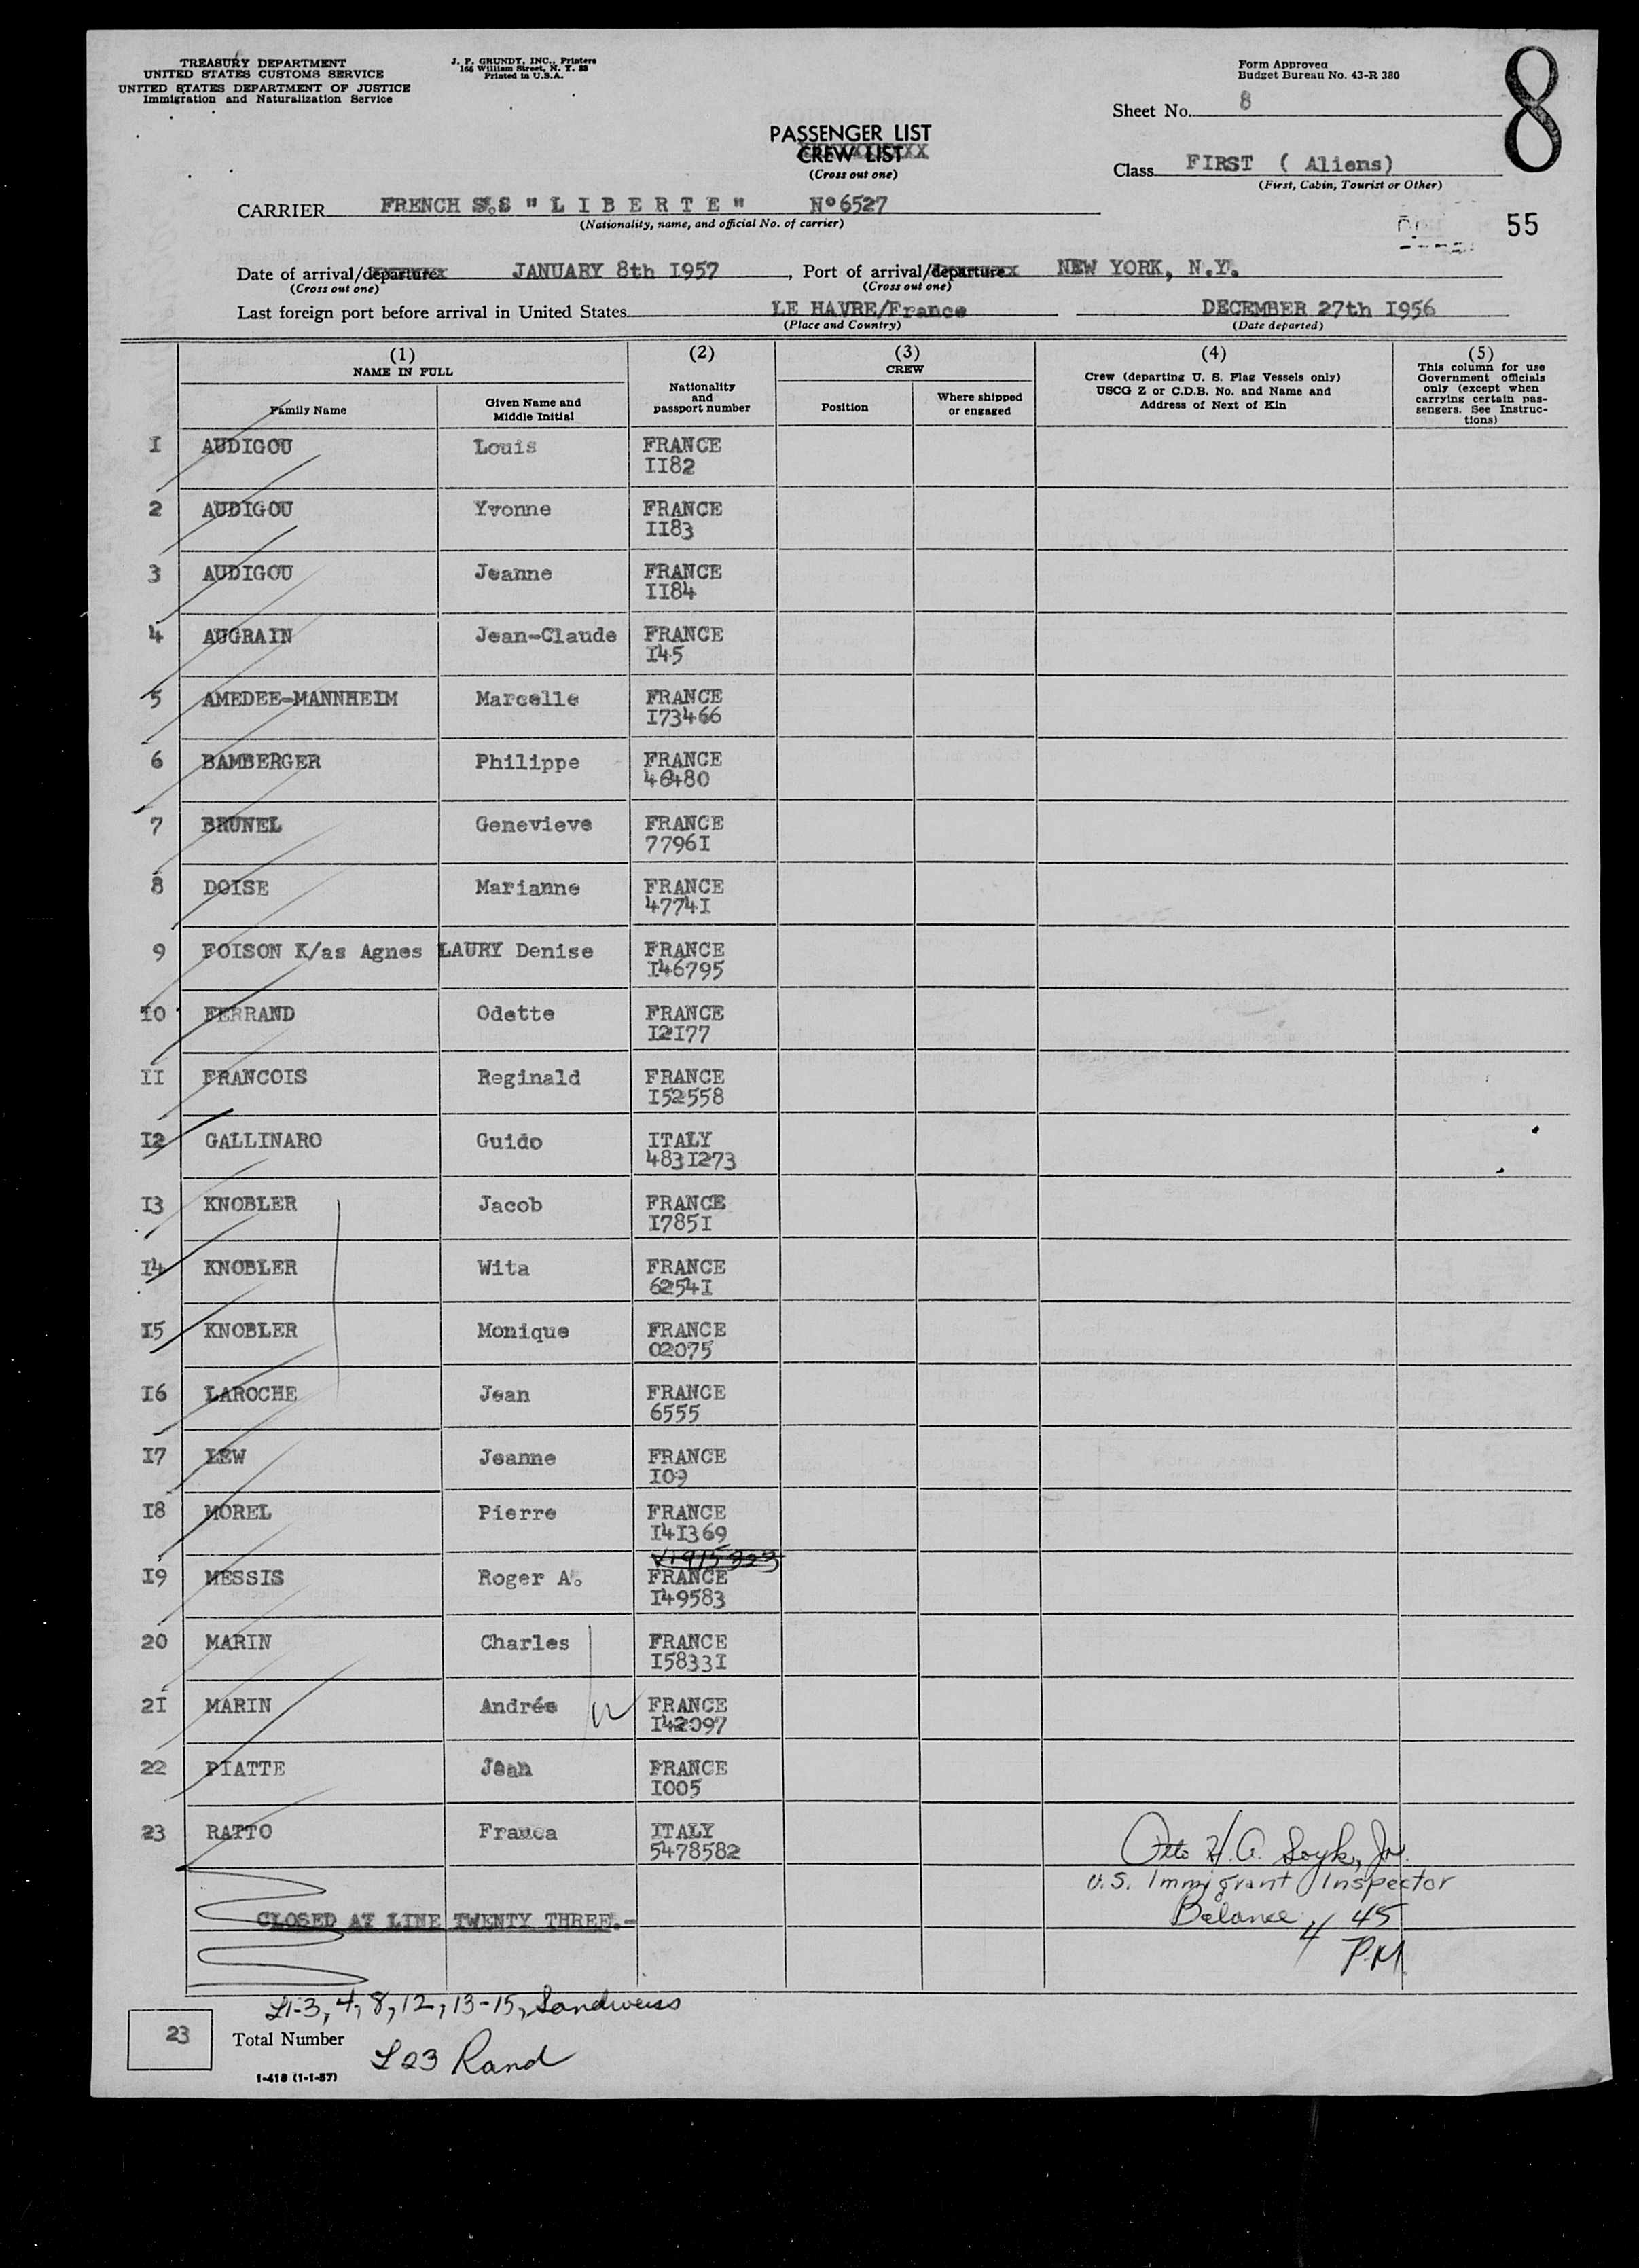 TREASURY DEPARTMENT
UNITED STATES CUSTOMS SERVICE
UNITED STATES DEPARTMENT OF JUSTICE
Immigration and Naturalization Service
J. P. GRUNDY, INC., Printers
166 William Street, N. Y. 38
Printed in U.S.A.
Form Approved
Budget Bureau No. 43-R 380
8
Sheet No. 8
PASSENGER LIST
CREW LIST
(Cross out one)
Class FIRST ( Aliens)
(First, Cabin, Tourist or Other)
CARRIER FRENCH S.S " L I B E R T E " N° 6527
(Nationality, name, and official No. of carrier)
55
Date of arrival/departure JANUARY 8th I957, Port of arrival/departure NEW YORK, N.Y.
(Cross out one) (Cross out one)
Last foreign port before arrival in United States LE HAVRE/France DECEMBER 27th I956
(Place and Country) (Date departed)
(1) NAME IN FULL
Family Name
Given Name and Middle Initial
(2)
Nationality and passport number
(3) CREW
Position
Where shipped or engaged
(4)
Crew (departing U. S. Flag Vessels only)
USCG Z or C.D.B. No. and Name and
Address of Next of Kin
(5)
This column for use
Government officials
only (except when
carrying certain pas-
sengers. See Instruc-
tions)
I AUDIGOU Louis FRANCE
II82
2 AUDIGOU Yvonne FRANCE
II83
3 AUDIGOU Jeanne FRANCE
II84
4 AUGRAIN Jean-Claude FRANCE
I45
5 AMEDEE-MANNHEIM Marcelle FRANCE
I73466
6 BAMBERGER Philippe FRANCE
7 BRUNEL Genevieve FRANCE
7796I
8 DOISE Marianne FRANCE
4774I
9 FOISON K/as Agnes LAURY Denise FRANCE
I46795
I0 FERRAND Odette FRANCE
I2I77
II FRANCOIS Reginald FRANCE
I52558
I2 GALLINARO Guido ITALY
483I273
I3 KNOBLER Jacob FRANCE
I785I
I4 KNOBLER Wita FRANCE
6254I
I5 KNOBLER Monique FRANCE
02075
I6 LAROCHE Jean FRANCE
6555
I7 LEW Jeanne FRANCE
I09
I8 MOREL Pierre FRANCE
I4I369
I9 MESSIS Roger A. FRANCE
I49583
20 MARIN Charles FRANCE
I5833I
2I MARIN Andrée FRANCE
I42097
22 PIATTE Jean FRANCE
I005
23 RATTO Franca ITALY
5478582
Otto H. A. Soyk, Jr.
U.S. Immigrant Inspector
CLOSED AT LINE TWENTY THREE.-
Balance 4 45
P.M.
L1-3, 4, 8, 12, 13-15, Sandweiss
23 Total Number
L23 Rand
I-418 (1-1-57)